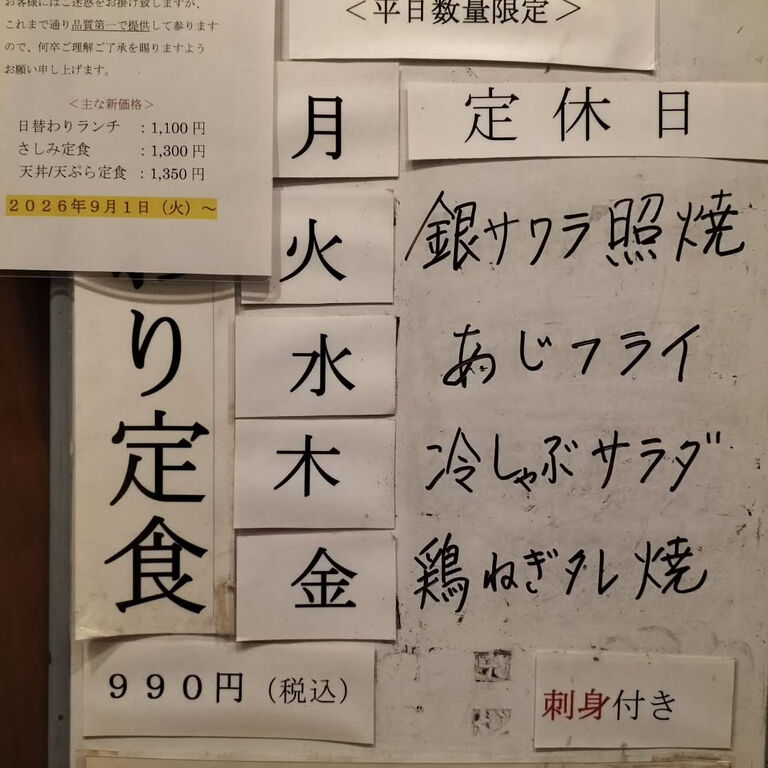 お客様にはご迷惑をお掛け致しますが、
これまで通り品質第一で提供して参ります
ので、何卒ご理解ご了承を賜りますよう
お願い申し上げます。
＜主な新価格＞
日替わりランチ ：1,100円
さしみ定食 ：1,300円
天丼/天ぷら定食 ：1,350円
２０２６年９月１日（火）～
＜平日数量限定＞
わり定食
月 定休日
火 銀サワラ照焼
水 あじフライ
木 冷しゃぶサラダ
金 鶏ねぎタレ焼
９９０円（税込）
刺身付き